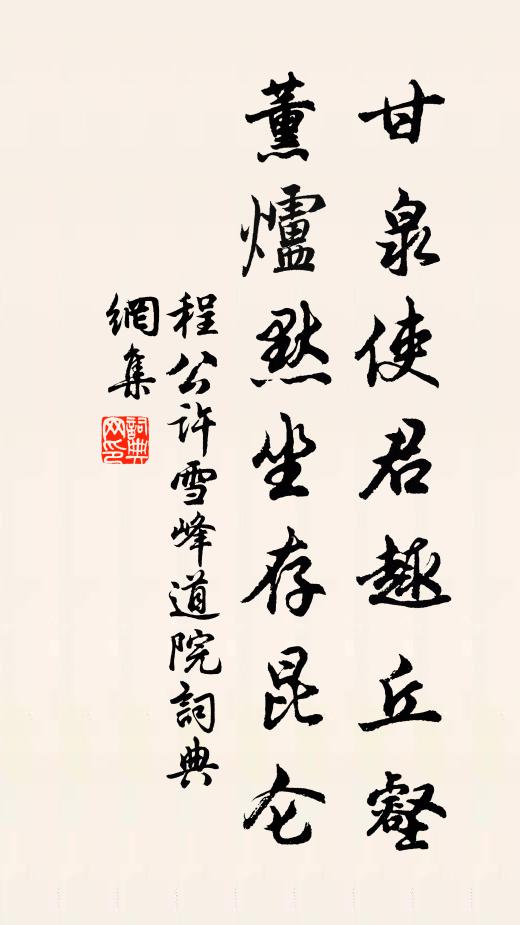 甘泉使君趣丘壑
薰爐默坐存昆仑
程公许雪峰道院詞典
網集
詞典网印